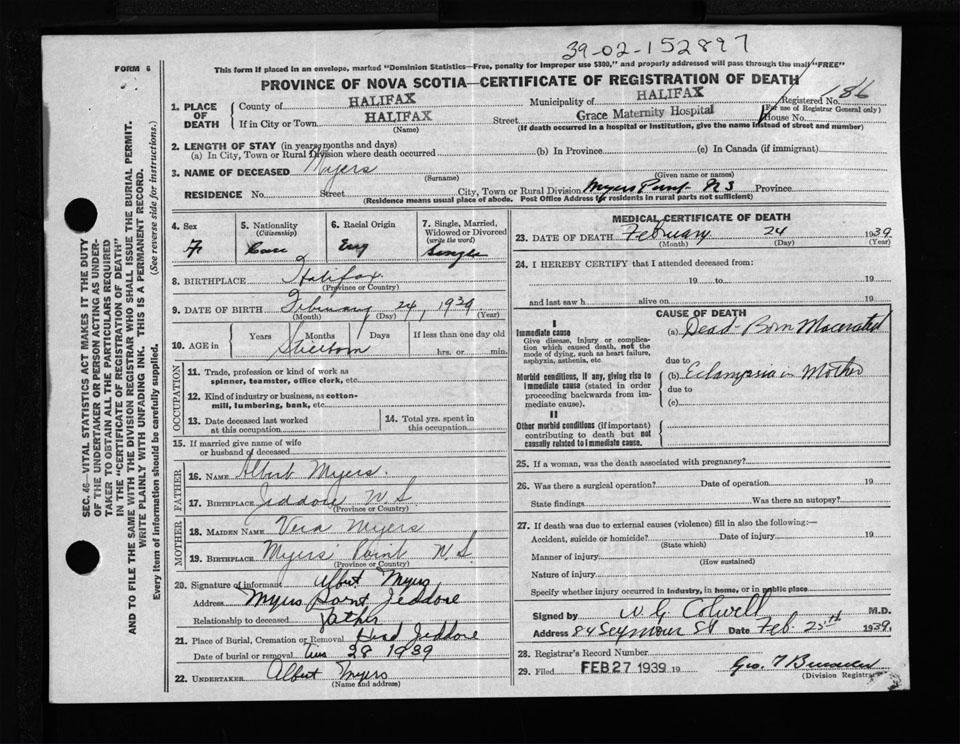 39-02-152897
FORM 6
This form if placed in an envelope, marked "Dominion Statistics—Free, penalty for improper use $300," and properly addressed will pass through the mail "FREE"
PROVINCE OF NOVA SCOTIA—CERTIFICATE OF REGISTRATION OF DEATH
1. PLACE OF DEATH
County of HALIFAX Municipality of HALIFAX Registered No. 186
(For use of Registrar General only)
If in City or Town HALIFAX Street Grace Maternity Hospital House No.
(Name) (If death occurred in a hospital or institution, give the name instead of street and number)
2. LENGTH OF STAY (in years, months and days)
(a) In City, Town or Rural Division where death occurred (b) In Province (c) In Canada (if immigrant)
3. NAME OF DECEASED Myers
(Surname) (Given name or names)
RESIDENCE No. Street City, Town or Rural Division Myers Point NS Province
(Residence means usual place of abode. Post Office Address of residents in rural parts not sufficient)
4. Sex F
5. Nationality (Citizenship) Can
6. Racial Origin Eng
7. Single, Married, Widowed or Divorced (write the word) Single
8. BIRTHPLACE Halifax
(Province or Country)
9. DATE OF BIRTH February 24, 1939
(Month) (Day) (Year)
10. AGE in Years Months Days If less than one day old
Stillborn hrs. or min.
OCCUPATION
11. Trade, profession or kind of work as spinner, teamster, office clerk, etc.
12. Kind of industry or business, as cotton-mill, lumbering, bank, etc.
13. Date deceased last worked at this occupation
14. Total yrs. spent in this occupation
15. If married give name of wife or husband of deceased
FATHER
16. NAME Albert Myers.
17. BIRTHPLACE Jeddore N S
(Province or Country)
MOTHER
18. MAIDEN NAME Vera Myers
19. BIRTHPLACE Myers' Point N S
(Province or Country)
20. Signature of informant Albert Myers
Address Myers Point Jeddore
Relationship to deceased Father
21. Place of Burial, Cremation or Removal Head Jeddore
Date of burial or removal 28 1939
22. UNDERTAKER Albert Myers
(Name and address)
MEDICAL CERTIFICATE OF DEATH
23. DATE OF DEATH February 24 1939
(Month) (Day) (Year)
24. I HEREBY CERTIFY that I attended deceased from:
19 to 19
and last saw h alive on 19
CAUSE OF DEATH
I
Immediate cause
Give disease, injury or complication which caused death, not the mode of dying, such as heart failure, asphyxia, asthenia, etc.
(a) Dead-Born Macerated
due to
Morbid conditions, if any, giving rise to immediate cause (stated in order proceeding backwards from immediate cause).
(b) Eclampsia in Mother
due to
(c)
II
Other morbid conditions (if important) contributing to death but not causally related to immediate cause.
25. If a woman, was the death associated with pregnancy?
26. Was there a surgical operation? Date of operation 19
State findings Was there an autopsy?
27. If death was due to external causes (violence) fill in also the following:—
Accident, suicide or homicide? Date of injury 19
(State which)
Manner of injury
(How sustained)
Nature of injury
Specify whether injury occurred in industry, in home, or in public place
Signed by W. G. Colwell M.D.
Address 84 Seymour St Date Feb. 25th 1939.
28. Registrar's Record Number
29. Filed FEB 27 1939 19
(Division Registrar)
SEC. 46—VITAL STATISTICS ACT MAKES IT THE DUTY
OF THE UNDERTAKER OR PERSON ACTING AS UNDER-
TAKER TO OBTAIN ALL THE PARTICULARS REQUIRED
IN THE "CERTIFICATE OF REGISTRATION OF DEATH"
AND TO FILE THE SAME WITH THE DIVISION REGISTRAR WHO SHALL ISSUE THE BURIAL PERMIT.
WRITE PLAINLY WITH UNFADING INK. THIS IS A PERMANENT RECORD.
Every item of information should be carefully supplied. (See reverse side for instructions.)